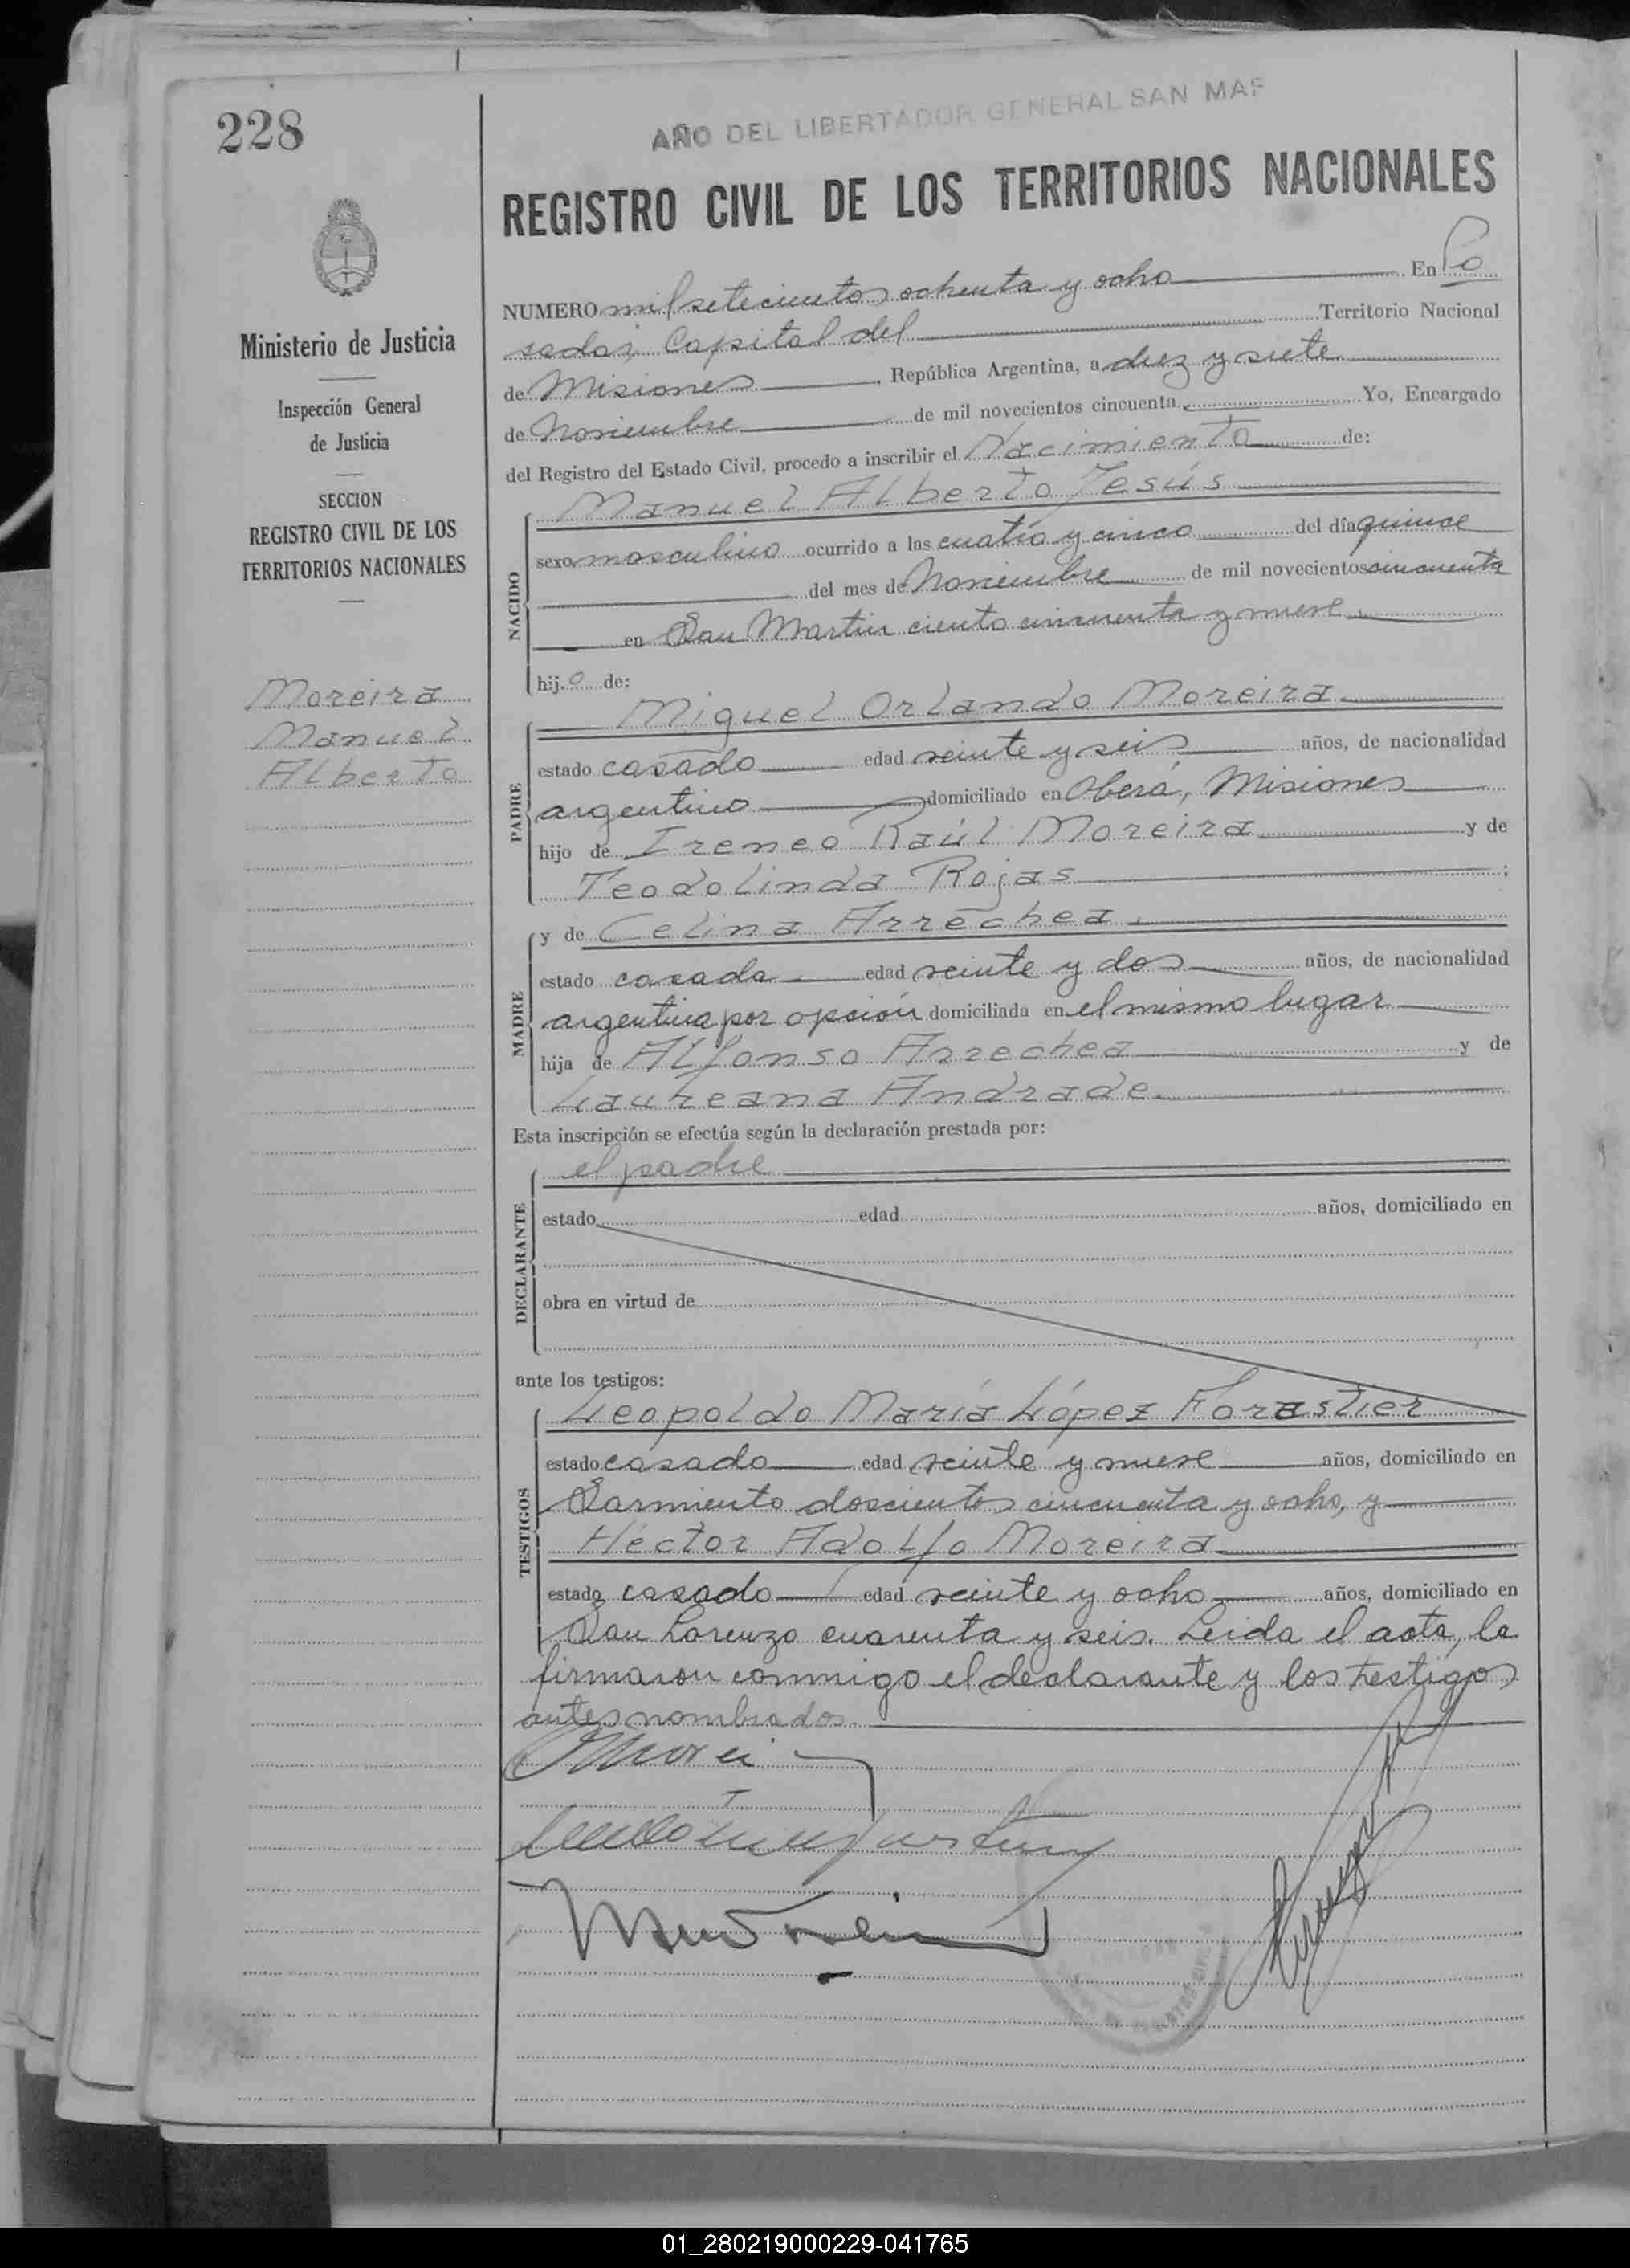 228
AÑO DEL LIBERTADOR GENERAL SAN MAR
REGISTRO CIVIL DE LOS TERRITORIOS NACIONALES
Ministerio de Justicia
Inspección General
de Justicia
SECCION
REGISTRO CIVIL DE LOS
TERRITORIOS NACIONALES
Moreira
Manuel
Alberto
NUMERO mil setecientos ochenta y ocho En Po
sadas, Capital del Territorio Nacional
de Misiones, República Argentina, a diez y siete
de Noviembre de mil novecientos cincuenta, Yo, Encargado
del Registro del Estado Civil, procedo a inscribir el Nacimiento de:
NACIDO
Manuel Alberto Jesús
sexo masculino ocurrido a las cuatro y cinco del día quince
del mes de Noviembre de mil novecientos cincuenta
en San Martin ciento cincuenta y nueve
hij o de:
PADRE
Miguel Orlando Moreira
estado casado edad veinte y seis años, de nacionalidad
argentino domiciliado en Oberá, Misiones
hijo de Ireneo Raúl Moreira y de
Teodolinda Rojas ;
MADRE
y de Celina Arrechea
estado casada edad veinte y dos años, de nacionalidad
argentina por opción domiciliada en el mismo lugar
hija de Alfonso Arrechea y de
Laureana Andrade
Esta inscripción se efectúa según la declaración prestada por:
DECLARANTE
el padre
estado edad años, domiciliado en
obra en virtud de
ante los testigos:
TESTIGOS
Leopoldo María López Forastier
estado casado edad veinte y nueve años, domiciliado en
Sarmiento doscientos cincuenta y ocho, y
Héctor Adolfo Moreira
estado casado edad veinte y ocho años, domiciliado en
San Lorenzo cuarenta y seis. Leida el acta, la
firmaron conmigo el declarante y los testigos
antes nombrados.
01_280219000229-041765